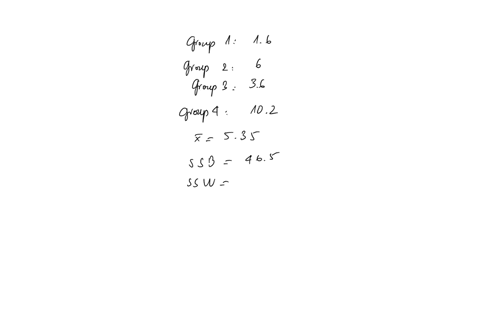 Group 1: 1.6
Group 2: 6
Group 3: 3.6
Group 4: 10.2
x̄ = 5.35
SSB = 46.5
SSW =